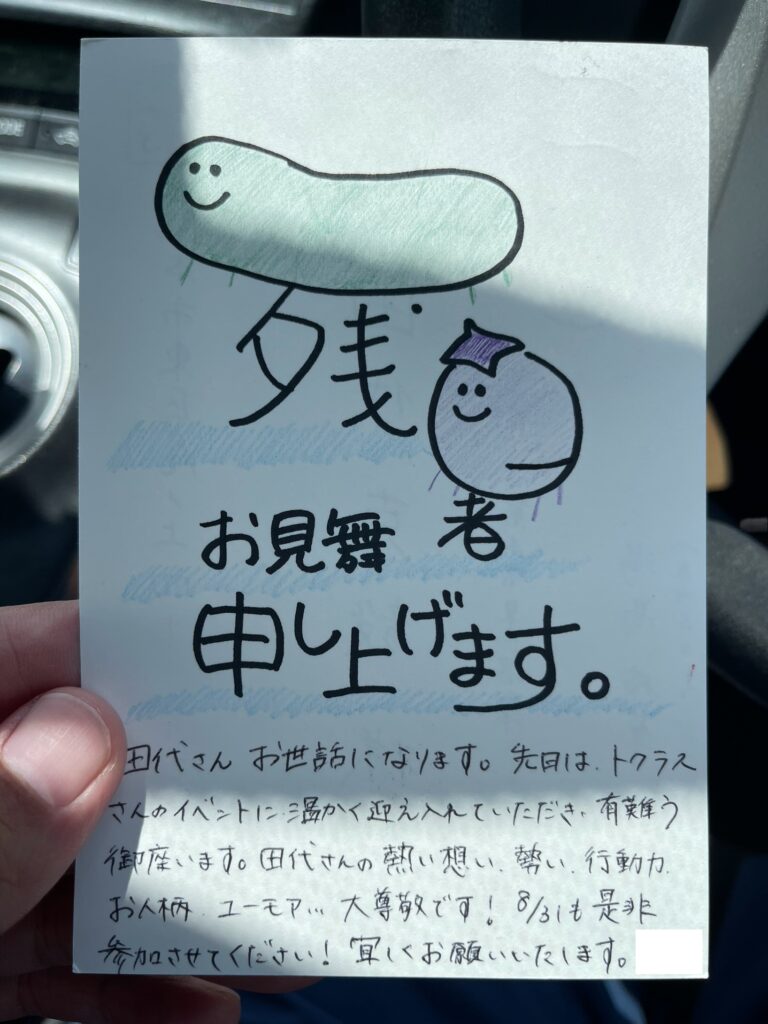 残
者
お見舞
申し上げます。
田代さん お世話になります。先日は、トクラス
さんのイベントに温かく迎え入れていただき、有難う
御座います。田代さんの熱い想い、勢い、行動力、
お人柄、ユーモア... 大尊敬です! 8/31も是非
参加させてください! 宜しくお願いいたします。